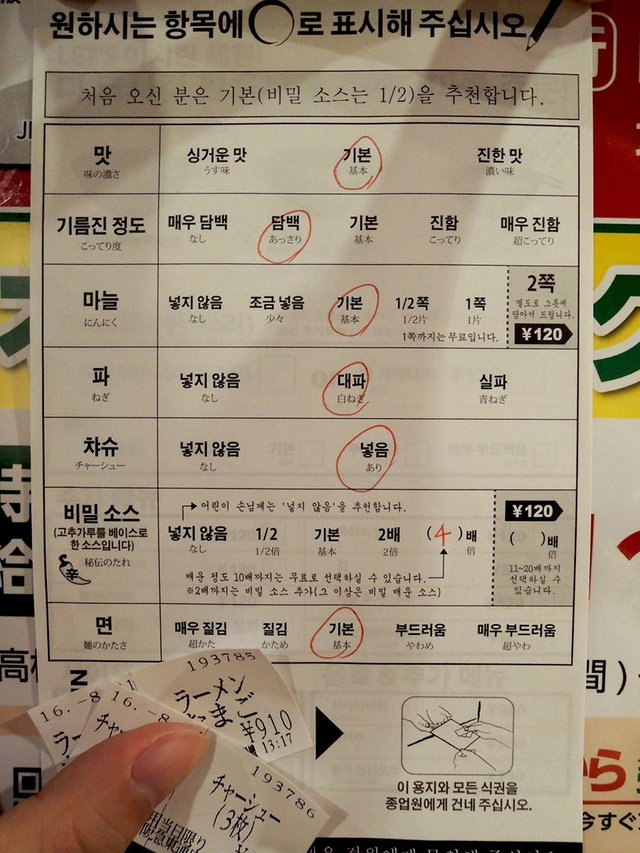 원하시는 항목에 ◯로 표시해 주십시오.
처음 오신 분은 기본(비밀 소스는 1/2)을 추천합니다.
맛 싱거운 맛 기본 진한 맛
味の濃さ うす味 基本 濃い味
기름진 정도 매우 담백 담백 기본 진함 매우 진함
こってり度 なし あっさり 基本 こってり 超こってり
마늘 넣지 않음 조금 넣음 기본 1/2쪽 1쪽 2쪽
にんにく なし 少々 基本 1/2片 1片 별도로 그릇에
담아서 드립니다.
1쪽까지는 무료입니다. ¥120
파 넣지 않음 대파 실파
ねぎ なし 白ねぎ 青ねぎ
챠슈 넣지 않음 넣음
チャーシュー なし あり
비밀 소스 어린이 손님께는 '넣지 않음'을 추천합니다. ¥120
(고추가루를 베이스로
한 소스입니다) 넣지 않음 1/2 기본 2배 (4)배 ( )배
秘伝のたれ なし 1/2倍 基本 2倍 倍 倍
辛 매운 정도 10배까지는 무료로 선택하실 수 있습니다. 11~20배까지
선택하실 수
있습니다.
※2배까지는 비밀 소스 추가(그 이상은 비밀 매운 소스)
면 매우 질김 질김 기본 부드러움 매우 부드러움
麺のかたさ 超かた かため 基本 やわめ 超やわ
193785
ラーメン
¥910
13:17
16.-8
16.-8
193786
チャーシュー
(3枚)
이 용지와 모든 식권을
종업원에게 건네 주십시오.
間)
から
今すぐ